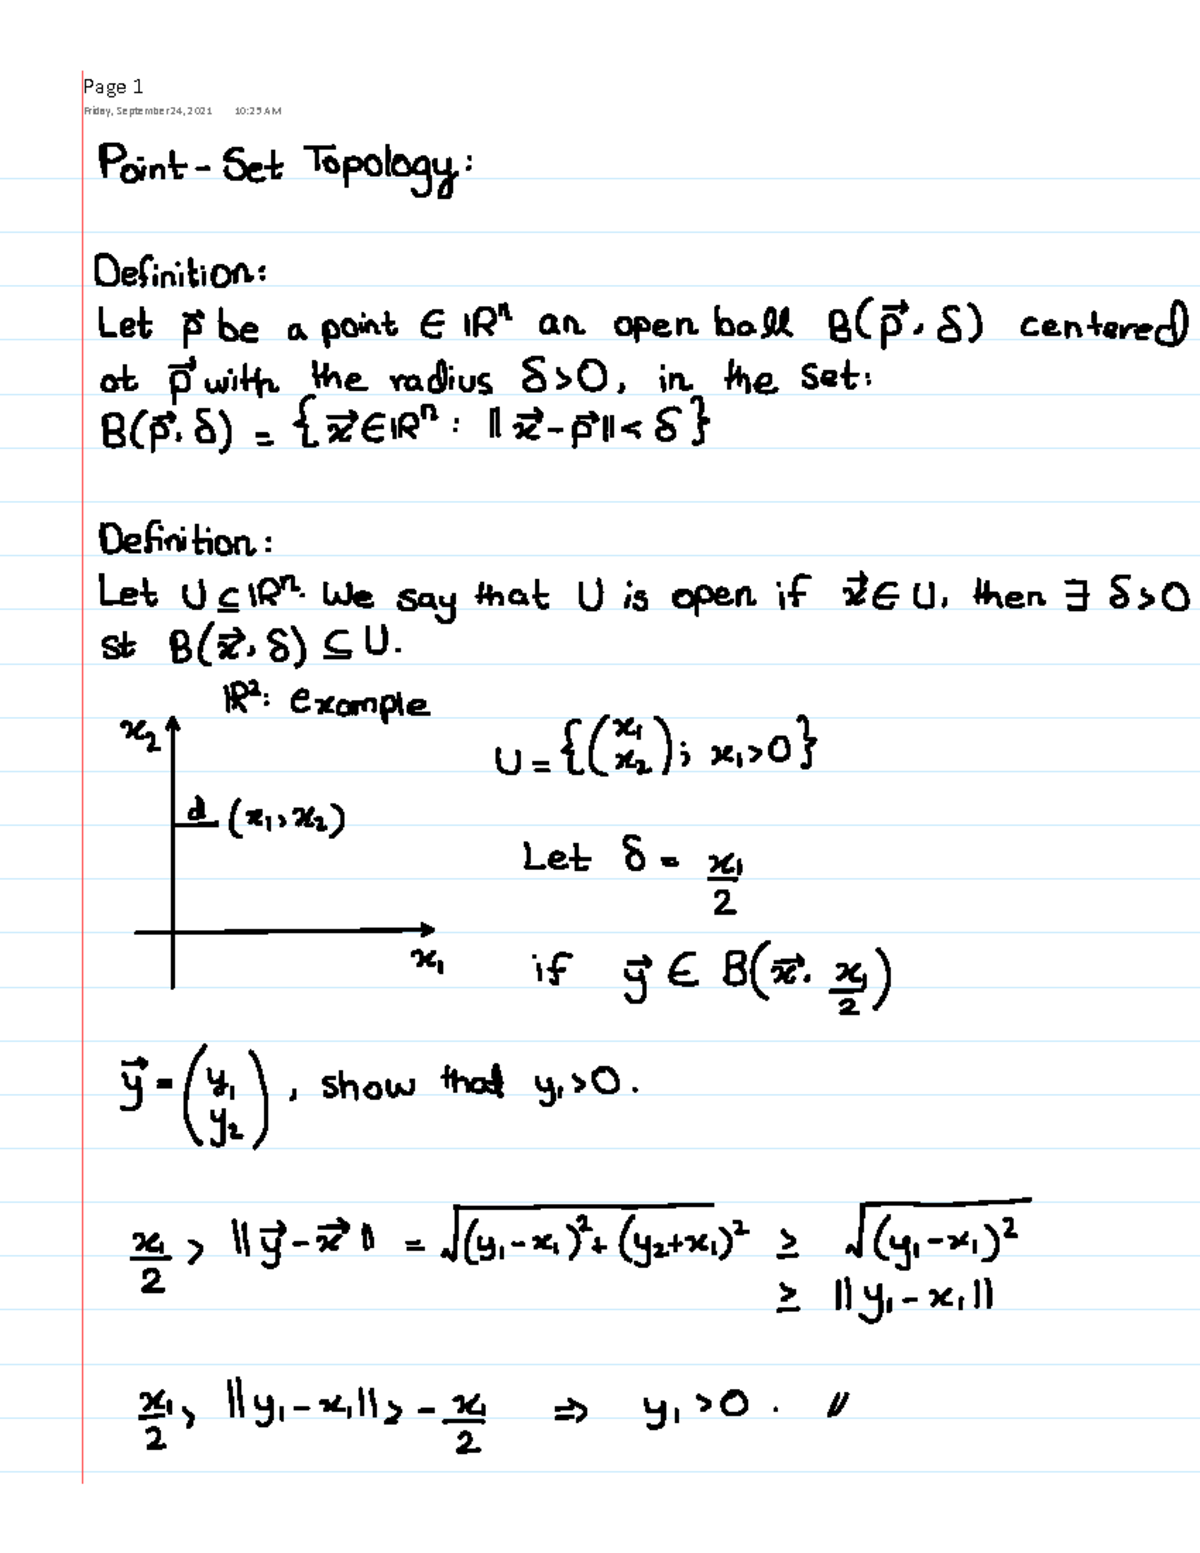 Page 1
Friday, September 24, 2021 10:25 AM
Point-Set Topology:
Definition:
Let p⃗ be a point ∈ ℝⁿ an open ball B(p⃗, δ) centered
at p⃗ with the radius δ>0, in the set:
B(p⃗, δ) = {x⃗ ∈ ℝⁿ : ‖x⃗ - p⃗‖ < δ}
Definition:
Let U ⊆ ℝⁿ. We say that U is open if x⃗ ∈ U, then ∃ δ>0
st B(x⃗, δ) ⊆ U.
ℝ²: example
x₂
U = {(x₁ x₂); x₁>0}
d (x₁, x₂)
Let δ = x₁/2
x₁
if y⃗ ∈ B(x⃗, x₁/2)
y⃗ = (y₁ y₂), show that y₁>0.
x₁/2 > ‖y⃗ - x⃗‖ = √(y₁-x₁)² + (y₂+x₁)² ≥ √(y₁-x₁)²
≥ ‖y₁ - x₁‖
x₁/2 > ‖y₁ - x₁‖ > - x₁/2 ⇒ y₁ > 0. //